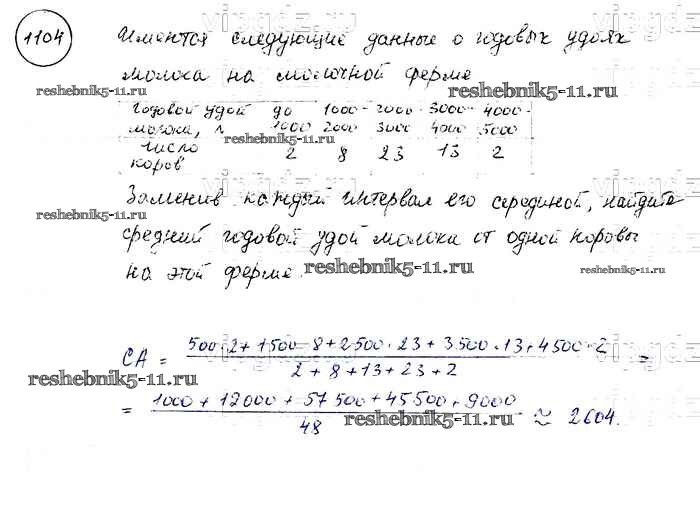 1104
Имеются следующие данные о годовых удоях
молока на молочной ферме
reshebnik5-11.ru
reshebnik5-11.ru
годовой удой до 1000- 2000- 3000- 4000-
молока, л 1000 2000 3000 4000 5000
reshebnik5-11.ru
число 2 8 23 13 2
коров
Заменив каждый интервал его серединой, найдите
reshebnik5-11.ru
средний годовой удой молока от одной коровы
на этой ферме.
reshebnik5-11.ru
reshebnik5-11.ru
СА = (500·2+1500·8+2500·23+3500·13+4500·2) / (2+8+13+23+2) =
reshebnik5-11.ru
= (1000+12000+57500+45500+9000) / 48 ≈ 2604.
reshebnik5-11.ru